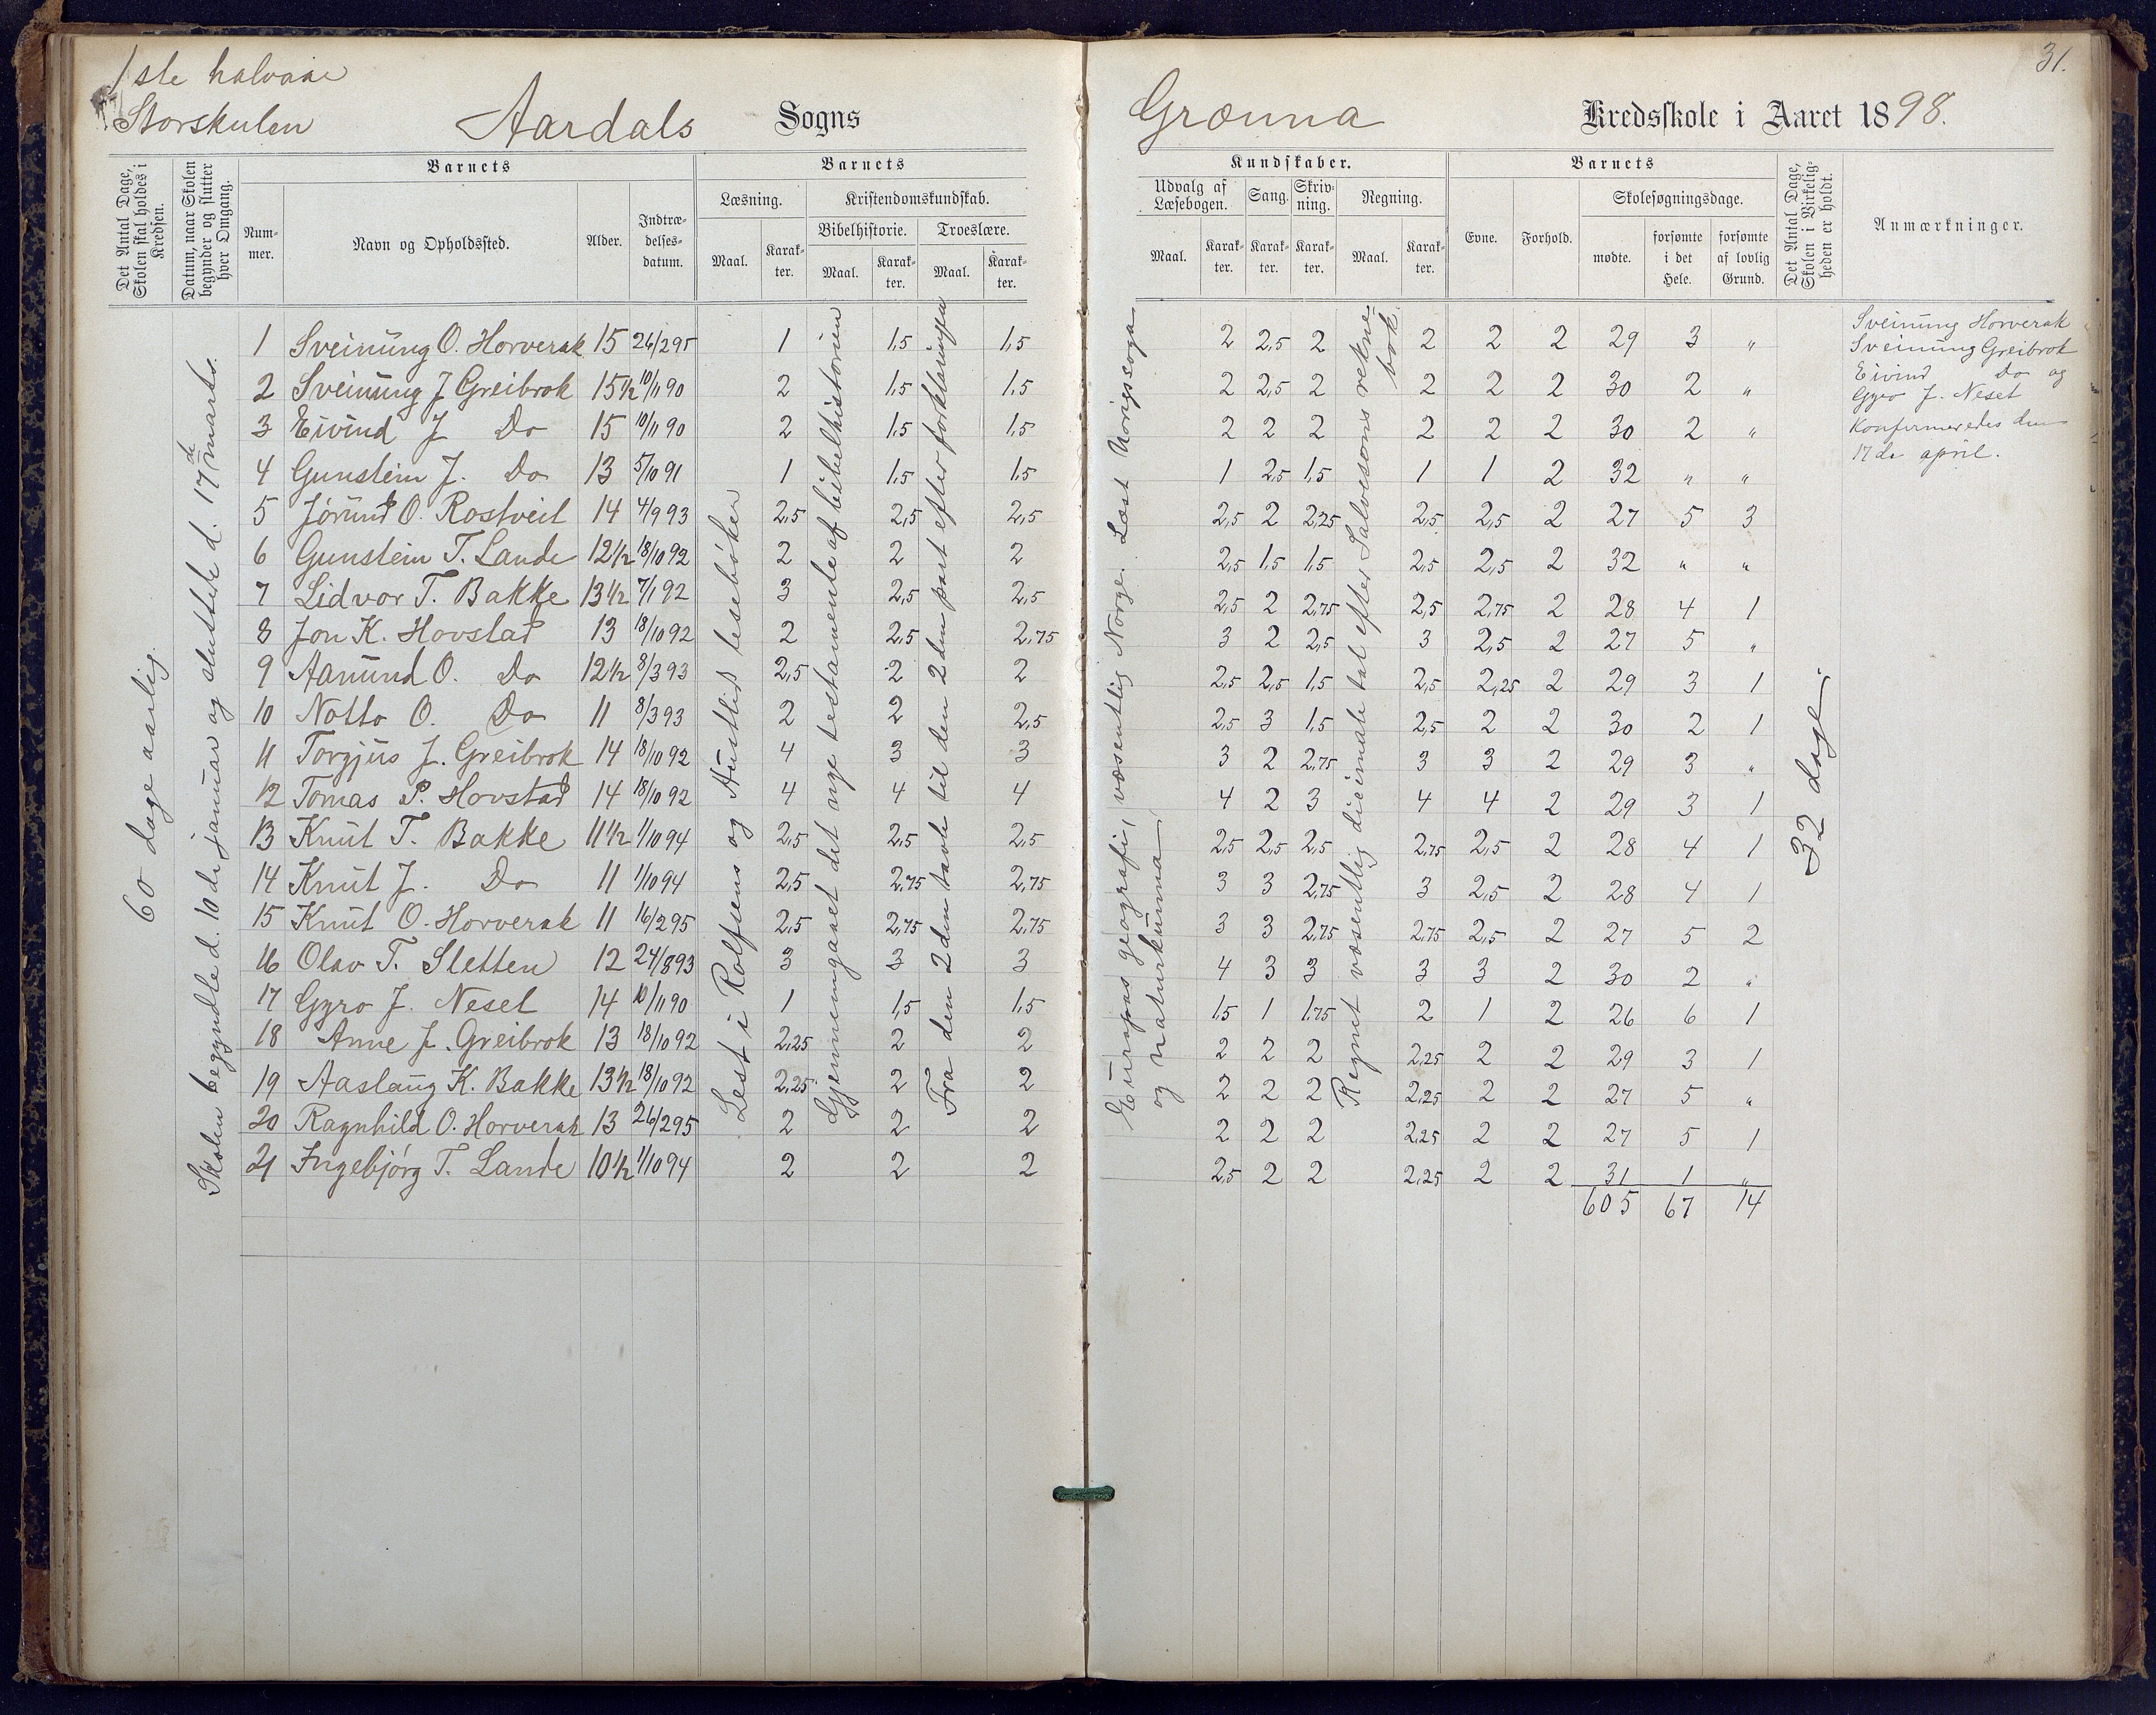 1ste halvaar
Storskulen
Aardals Sogns
Grænna Kredsskole i Aaret 1898.
31.
Det Antal Dage, Skolen skal holdes i Kredsen.
Datum, naar Skolen begynder og slutter hver Omgang.
Barnets
Num-mer.
Navn og Opholdssted.
Alder.
Indtræ-delses-datum.
Barnets
Læsning.
Maal.
Karak-ter.
Kristendomskundskab.
Bibelhistorie.
Troeslære.
Maal.
Karak-ter.
Maal.
Karak-ter.
Kundskaber.
Udvalg af Læsebogen.
Sang.
Skriv-ning.
Regning.
Maal.
Karak-ter.
Karak-ter.
Karak-ter.
Maal.
Karak-ter.
Barnets
Evne.
Forhold.
Skolesøgningsdage.
mødte.
forsømte i det Hele.
forsømte af lovlig Grund.
Det Antal Dage, Skolen i Virkelig-heden er holdt.
Anmærkninger.
60 dage aarlig.
Skolen begyndte d. 10de januar og sluttede d. 17de marts.
Lest i Rolfsens og Austlid lesebøker
Gjennemgaaet det nye testamente af bibelhistorien
Fra den 2den tavle til den 2den part efter forklaringen
Europas geografi, væsentlig Norge. Læst Norigssoga
og naturkunna
Regnet væsentlig diecimale tal efter Salvesons rekne-
bok.
32 dage.
1 Sveinung O. Horverak 15 26/2 95 1 1,5 1,5 2 2,5 2 2 2 2 29 3 "
2 Sveinung J Greibrok 15 1/2 10/11 90 2 1,5 1,5 2 2,5 2 2 2 2 30 2 "
3 Eivind J Do 15 10/11 90 2 1,5 1,5 2 2 2 2 2 2 30 2 "
4 Gunstein J. Do 13 5/10 91 1 1,5 1,5 1 2,5 1,5 1 1 2 32 " "
5 Jørund O. Rostveit 14 4/9 93 2,5 2,5 2,5 2,5 2 2,25 2,5 2,5 2 27 5 3
6 Gunstein T. Lande 12 1/2 18/10 92 2 2 2 2,5 1,5 1,5 2,5 2,5 2 32 " "
7 Lidvor T. Bakke 13 1/2 7/1 92 3 2,5 2,5 2,5 2 2,75 2,5 2,75 2 28 4 1
8 Jon K. Hovstad 13 18/10 92 2 2,5 2,75 3 2 2,5 3 2,5 2 27 5 "
9 Aanund O. Do 12 1/2 8/3 93 2,5 2 2 2,5 2,5 1,5 2,5 2,25 2 29 3 1
10 Notto O. Do 11 8/3 93 2 2 2,5 2,5 3 1,5 2,5 2 2 30 2 1
11 Torgjus J. Greibrok 14 18/10 92 4 3 3 3 2 2,75 3 3 2 29 3 "
12 Tomas P. Hovstad 14 18/10 92 4 4 4 4 2 3 4 4 2 29 3 1
13 Knut T. Bakke 11 1/2 1/10 94 2,5 2,5 2,5 2,5 2,5 2,5 2,75 2,5 2 28 4 1
14 Knut J. Do 11 1/10 94 2,5 2,75 2,75 3 3 2,75 3 2,5 2 28 4 1
15 Knut O. Horverak 11 16/2 95 2,5 2,75 2,75 3 3 2,75 2,75 2,5 2 27 5 2
16 Olav T. Sletten 12 24/8 93 3 3 3 4 3 3 3 3 2 30 2 "
17 Gyro J. Neset 14 10/11 90 1 1,5 1,5 1,5 1 1,75 2 1 2 26 6 1
18 Anne J. Greibrok 13 18/10 92 2,25 2 2 2 2 2 2,25 2 2 29 3 1
19 Aaslaug K. Bakke 13 1/2 18/10 92 2,25 2 2 2 2 2 2,25 2 2 27 5 "
20 Ragnhild O. Horverak 13 26/2 95 2 2 2 2 2 2 2,25 2 2 27 5 1
21 Ingebjørg T. Lande 10 1/2 1/10 94 2 2 2 2,5 2 2 2,25 2 2 31 1 "
605 67 14
Sveinung Horverak
Sveinung Greibrok
Eivind Do og
Gyro J. Neset
Konfirmeredes den
17de april.